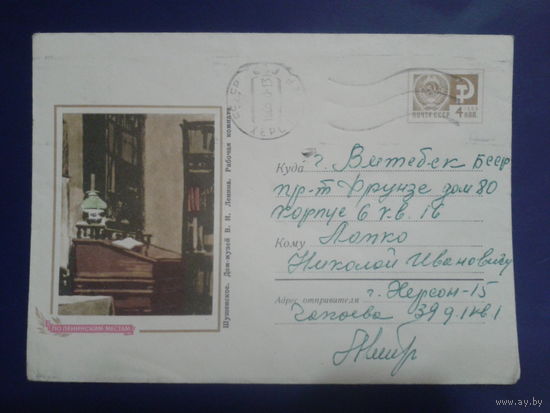 ПОЧТА СССР 4 КОП.
Куда г. Витебск БССР
пр-т Фрунзе дом 80
корпус 6 кв. 16
Кому Лопко
Николой Ивановичу
Адрес отправителя г. Херсон-15
Чапаева 39 д. 1 кв. 1
Шушенское. Дом-музей В. И. Ленина. Рабочая комната.
ПО ЛЕНИНСКИМ МЕСТАМ
www.ay.by